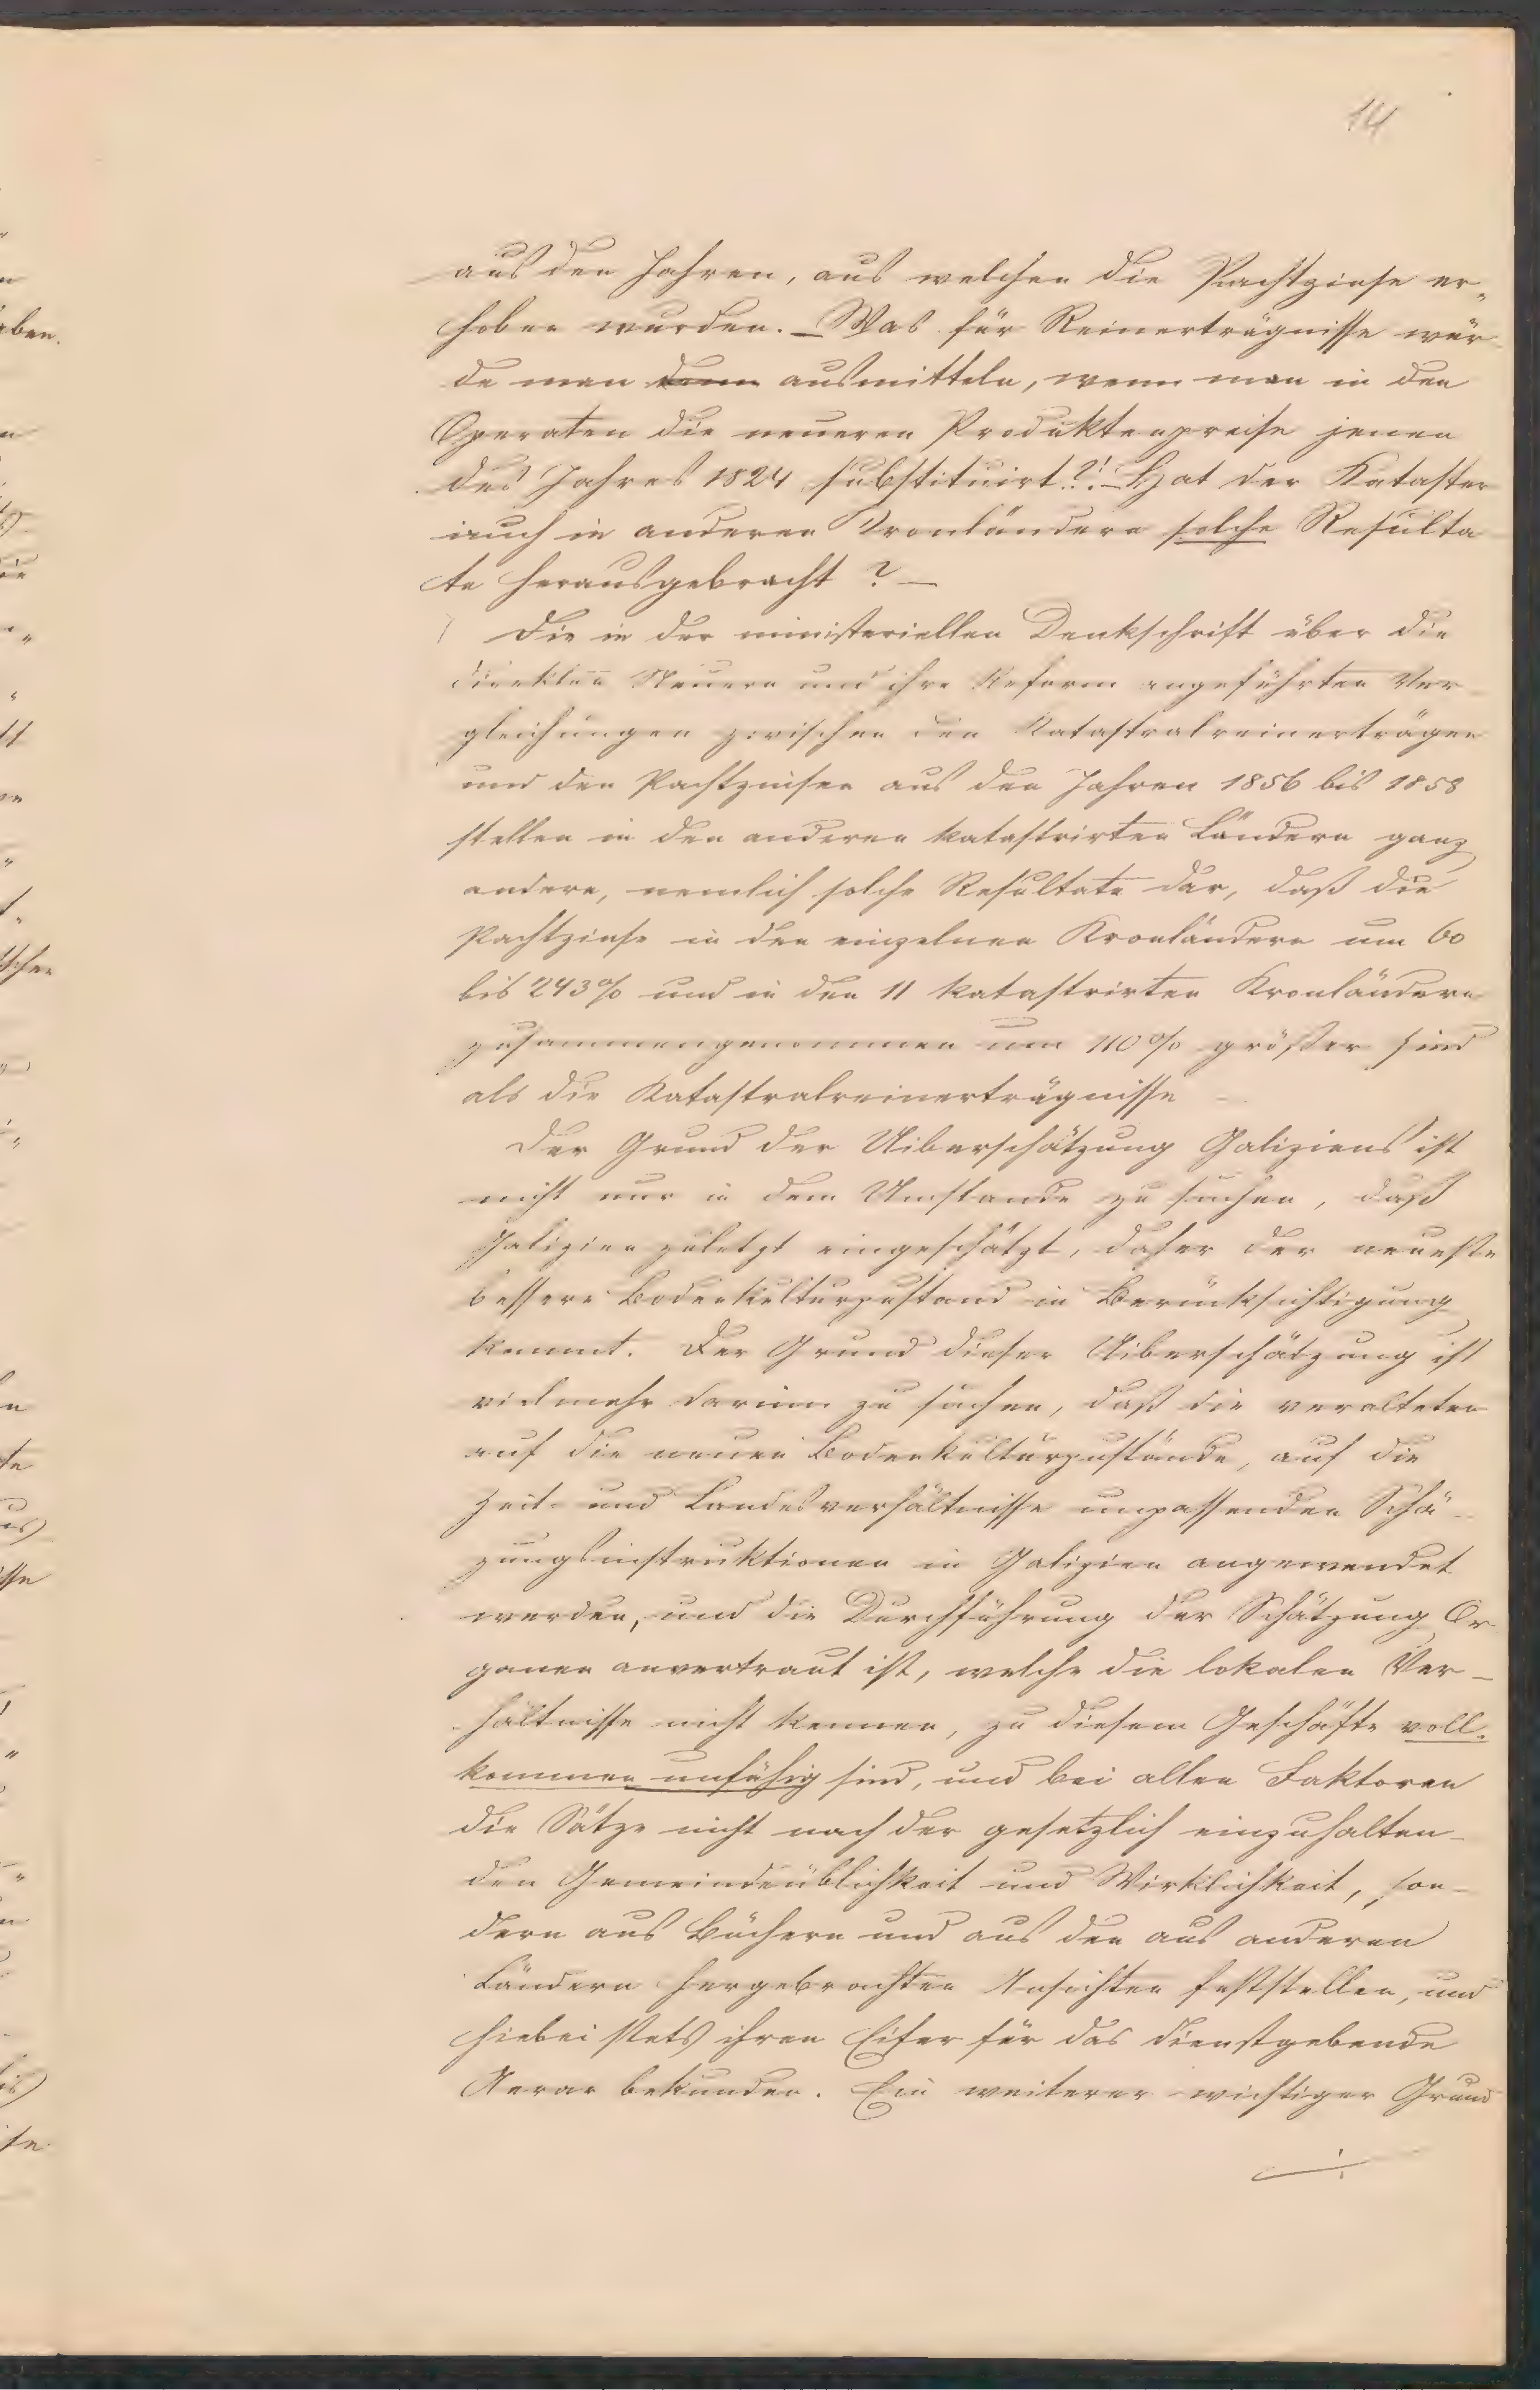 14
aus den Jahren, aus welchen die Pachtzinse er„
hoben wurden. – Was für Reinerträgnisse wür
de man dann ausmitteln, wenn man in den
Operaten die neueren Produktenpreise jenen
des Jahres 1824 substituirt?! – Hat der Kataster
auch in anderen Kronländern solche Resulta
te herausgebracht? –
Die in der ministeriellen Denkschrift über die
direkten Steuern und ihre Reform angeführten Ver
gleichungen zwischen den Katastralreinerträgen
und den Pachtzinsen aus den Jahren 1856 bis 1858
stellen in den anderen katastrirten Ländern ganz
andere, nemlich solche Resultate dar, daß die
Pachtzinse in den einzelnen Kronländern um 60
bis 243% und in den 11 katastrirten Kronländern
zusammengenommen um 110% größer sind
als die Katastralreinerträgnisse
Der Grund der Uiberschätzung Galiziens ist
nicht nur in dem Umstande zu suchen, daß
Galizien zuletzt eingeschätzt, daher der neueste
bessere Bodenkulturzustand in Berücksichtigung
kommt. Der Grund dieser Uiberschätzung ist
vielmehr darinn zu suchen, daß die veralteten
auf die neuen Bodenkulturzustände, auf die
Zeit- und Landesverhältnisse unpassenden Schä-
zungsinstruktionen in Galizien angewendet
werden, und die Durchführung der Schätzung Or
ganen anvertraut ist, welche die lokalen Ver-
hältnisse nicht kennen, zu diesem Geschäfte voll-
kommen unfähig sind, und bei allen Faktoren
die Sätze nicht nach der gesetzlich einzuhalten-
den Gemeindeüblichkeit und Wirklichkeit, son-
dern aus Büchern und aus den aus anderen
Ländern hergebrachten Ansichten feststellen, und
hiebei stets ihren Eifer für das dienstgebende
Aerar bekunden. Ein weiterer wichtiger Grund